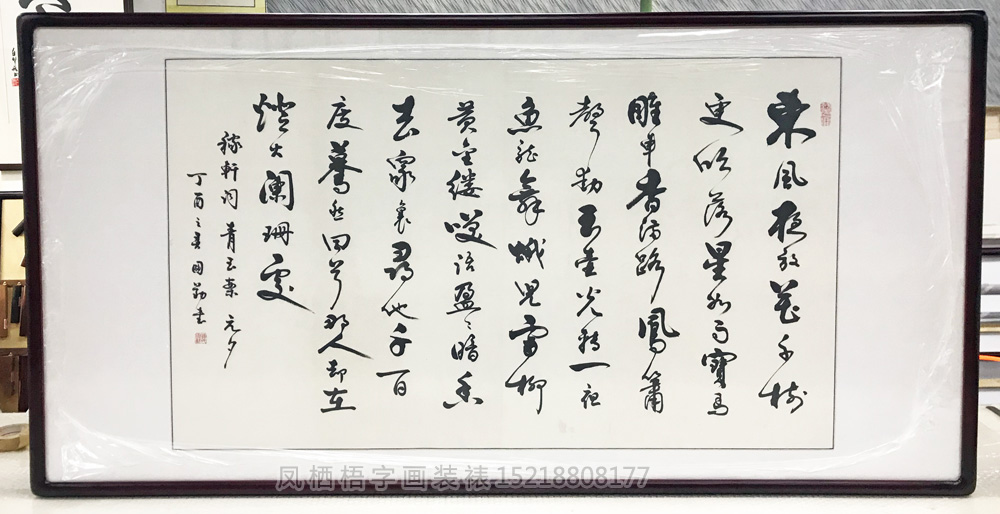 東風夜放花千樹
更吹落星如雨寶馬
雕車香满路鳳簫
聲動玉壺光轉一夜
魚龍舞蛾兒雪柳
黄金缕笑語盈〻暗香
去衆裏尋他千百
度驀然回首那人却在
燈火阑珊處
稼軒词青玉案元夕
丁酉之春国勤書
凤栖梧字画装裱15218808177